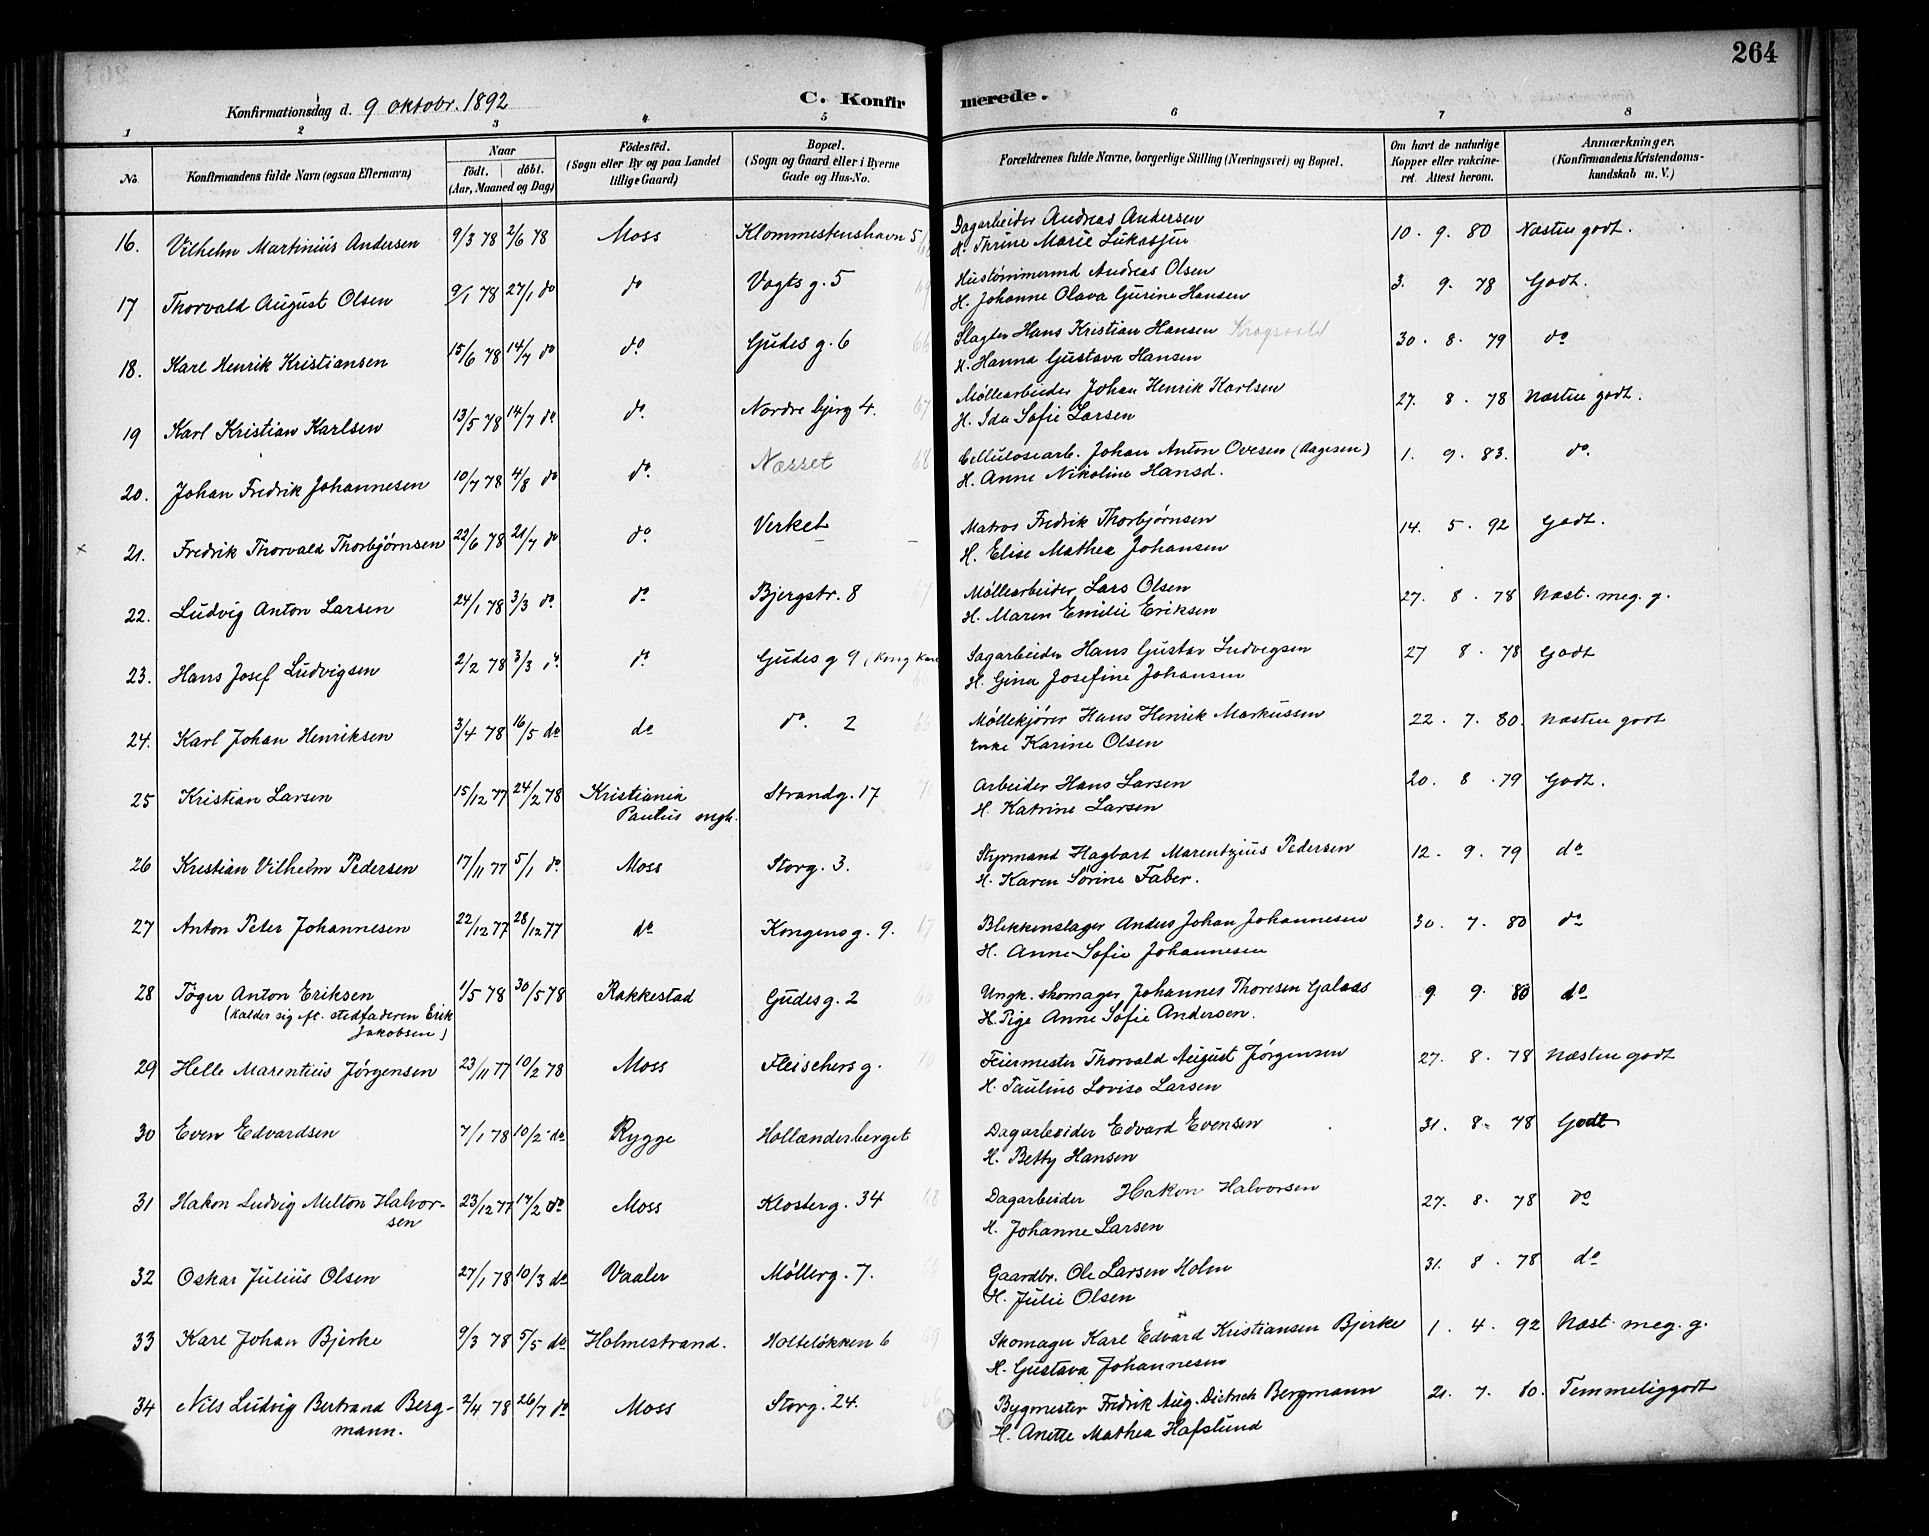 264
Konfirmationsdag d. 9 oktobr. 1892
C. Konfirmerede.
1 2 3 4 5 6 7 8
No. Konfirmandens fulde Navn (ogsaa Efternavn) Naar födt. döbt. (Aar, Maaned og Dag) Födested. (Sogn eller By og paa Landet tillige Gaard) Bopæl. (Sogn og Gaard eller i Byerne Gade og Hus-No. Forældrenes fulde Navne, borgerlige Stilling (Næringsvei) og Bopæl. Om havt de naturlige Kopper eller vakcineret. Attest herom. Anmærkninger. (Konfirmandens Kristendomskundskab m. V.)
16. Vilhelm Martinius Andersen 9/3 78 2/6 78 Moss Klommestenshavn 5 Dagarbeider Andreas Andersen 10. 9. 80 Næsten godt.
H. Thrine Marie Lukasjen
17 Thorvald August Olsen 9/1 78 27/1 do do Vogts g. 5 Hustømmermd Andreas Olsen 3. 9. 78 Godt.
H. Johanne Olava Gurine Hansen
18. Karl Henrik Kristiansen 15/6 78 14/7 do do. Gudes g. 6 66 Slagter Hans Kristian Hansen 30. 8. 79 do
H. Hanna Gustava Hansen
19 Karl Kristian Karlsen 13/5 78 14/7 do do. Nordre bjerg 4. 67 Møllearbeider Johan Henrik Karlsen 27. 8. 78 Næsten godt.
H. Ida Sofie Larsen
20. Johan Fredrik Johannesen 10/7 78 4/8 do do. Næsset 68 Cellulosearb. Johan Anton Ovesen (Aagesen) 1. 9. 83. do.
H. Anne Nikoline Hansd.
x 21. Fredrik Thorvald Thorbjørnsen 22/6 78 21/7 do do. Verket – Matros Fredrik Thorbjørnsen 14. 5. 92 Godt.
H. Elise Mathea Johansen
22. Ludvig Anton Larsen 24/1 78 3/3 do. do Bjergstr. 8 67 Møllearbeider Lars Olsen 27. 8. 78 Næst. meg. g.
H. Maren Emilie Eriksen
23. Hans Josef Ludvigsen 2/2 78 3/3 do. do Gudes g 9 (Kong Karl 66 Sagarbeider Hans Gustav Ludvigsen 27 8. 78 Godt
H. Gina Josefine Johansen
24. Karl Johan Henriksen 3/4 78 16/5 do do do. 2 66 Møllekjører Hans Henrik Markussen 22. 7. 80. Næsten godt
Enke Karine Olsen
25 Kristian Larsen 15/12 77 24/2 78 Kristiania Strandg. 17 70 Arbeider Hans Larsen 20. 8. 79 Godt.
Paulus mgh. H. Katrine Larsen
26 Kristian Vilhelm Pedersen 17/11 77 5/1 do. Moss Storg. 3. Styrmand Hagbart Marentzius Pedersen 12. 9. 79 do
H. Karen Sørine Faber.
27 Anton Peter Johannesen 22/12 77 28/12 77 do Kongensg. 9. 67 Blikkenslager Anders Johan Johannesen 30. 7. 80 do
H. Anne Sofie Johannesen
28 Töger Anton Eriksen 1/5 78 30/5 78 Rakkestad Gudesg. 2 Ungk. skomager Johannes Thoresen Galaas 9 9. 80 do
(kalder sig eft. stedfaderen Erik H. Pige Anne Sofie Andersen.
Jakobsen)
29 Helle Marentius Jørgensen 23/11 77 10/2 78 Moss Fleischers g. Feiermester Thorvald August Jörgensen 27. 8. 78 Næsten godt
H. Pauline Lovise Larsen
30 Even Edvardsen 7/1 78 10/2 do Rygge Hollænderberget Dagarbeider Edvard Evensen 31. 8. 78 Godt
H. Betty Hansen
31 Hakon Ludvig Melton Halvor- 23/12 77 17/2 do Moss Klosterg. 34 Dagarbeider Hakon Halvorsen 27. 8. 78 do
sen H. Johanne Larsen
32 Oskar Julius Olsen 27/1 78 10/3 do Vaaler Møllerg. 7. Gaardbr. Ole Larsen Holm 31. 8. 78 do
H. Julie Olsen
33 Karl Johan Bjerke 9/3 78 5/5 do Holmestrand. Holteløkken 6 69 Skomager Karl Edvard Kristiansen Bjerke 1. 4. 92 Næst. meg. g.
H. Gustava Johannesen
34 Nils Ludvig Bertrand Berg- 2/4 78 26/7 do Moss Storg. 24. 66 Bygmester Fredrik Aug. Dietrich Bergmann 21. 7. 80. Temmeliggodt
mann. H. Anette Mathea Hafslund